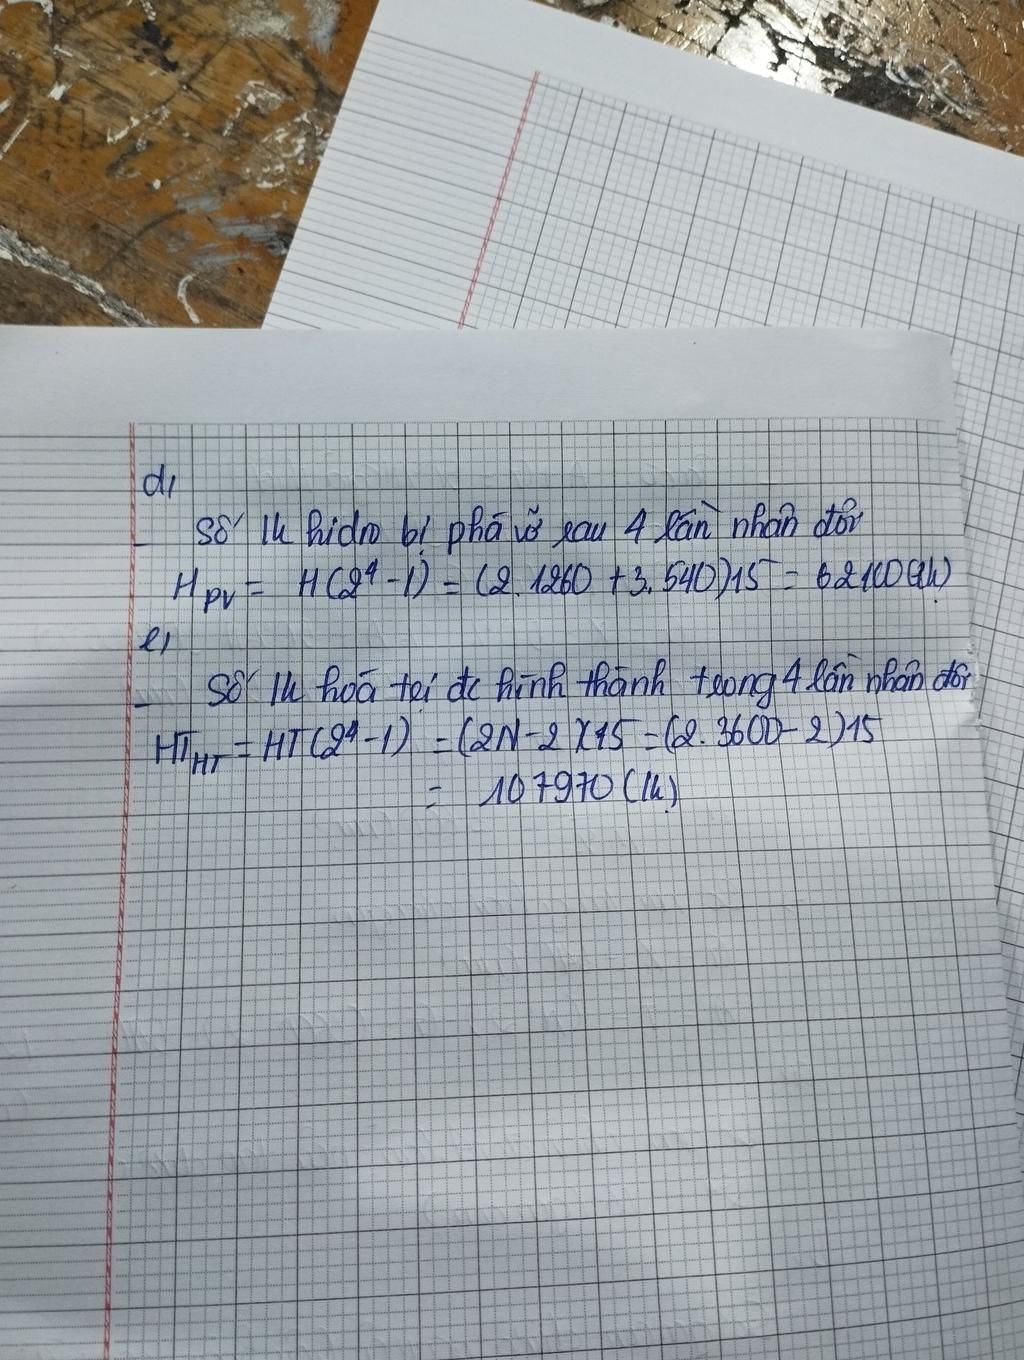 d,
- Số lk hidro bị phá vỡ sau 4 lần nhân đôi
H PV = H(2⁴-1) = (2.1260 + 3.540)15 = 62100(lk)
e,
- Số lk hoá trị đc hình thành trong 4 lần nhân đôi
HT HT = HT(2⁴-1) = (2N-2)(15 = (2.3600-2)15
= 107970 (lk)